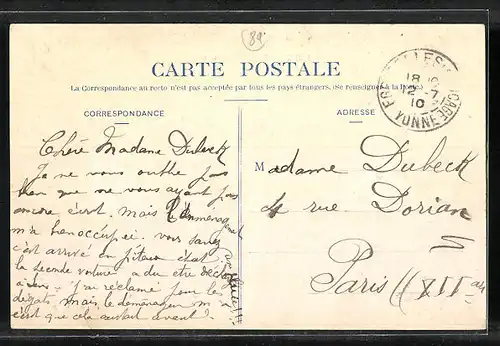 89
CARTE POSTALE
La Correspondance au recto n'est pas acceptée par tous les pays étrangers. (Se renseigner à la Poste.)
CORRESPONDANCE
ADRESSE
18
12 -7
10
YONNE
Chère Madame Dubeck
Je ne vous oublie pas
bien que ne vous ayant pas
encore écrit. mais le déménagement
m'a bien occupée. vous savez
c'est arrivé en piteux état
la seconde voiture a du être
j'ai réclamé pour les
dégâts. mais le déménageur
que cela aurait avant
Madame Dubeck
4 rue Dorian
Paris XII